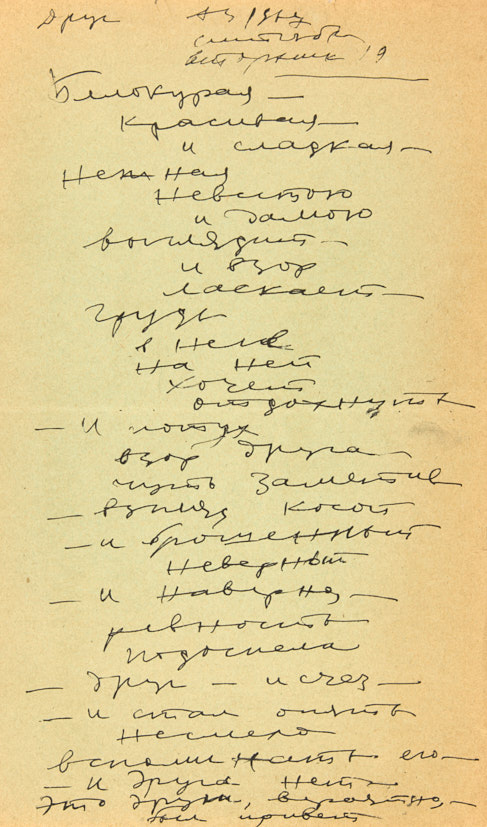 Друг
вторник 19
Белокурая —
красивая —
и сладкая —
нежная
Невестою
и дамою
выглядит —
и взор
ласкает —
грудь
в неге
на ней
хочет
отдохнуть
— И потух
взор друга —
чуть заметив
— взгляд косой
— и брошенный
неверный
— и наверно, —
ревность
подоспела
— друг — исчез —
— и стал опять
несмело
вспоминать его —
— И друга нет —
Это друг, вероятно, —
привет